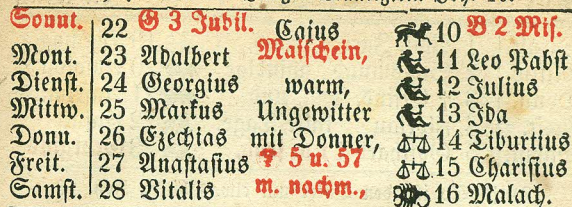 Sonnt. 22 G 3 Jubil. Cajus 10 B 2 Mis.
Mont. 23 Adalbert Maischein, 11 Leo Pabst
Dienst. 24 Georgius warm, 12 Julius
Mittw. 25 Markus Ungewitter 13 Ida
Donn. 26 Ezechias mit Donner, 14 Tiburtius
Freit. 27 Anastasius 5 u. 57 15 Charisius
Samst. 28 Vitalis m. nachm., 16 Malach.